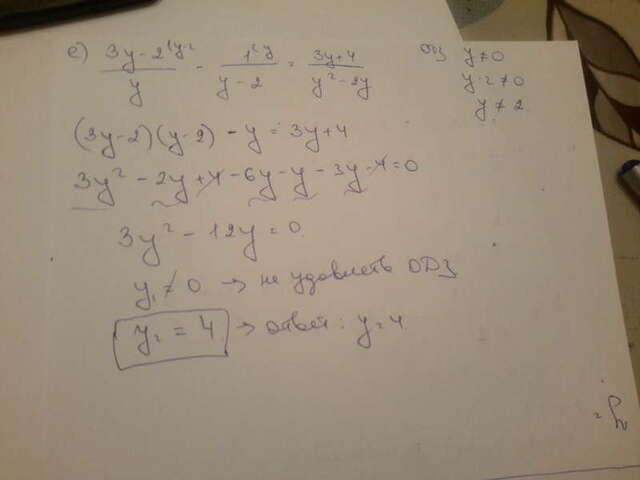 е) (3y-2)/y - 1/(y-2) = (3y+4)/(y²-2y) ОДЗ y≠0
y-2≠0
y≠2
(3y-2)(y-2) - y = 3y+4
3y² - 2y + 4 - 6y - y - 3y - 4 = 0
3y² - 12y = 0
y₁ ≠ 0 → не удовлеть ОДЗ
y₂ = 4 → ответ: y=4